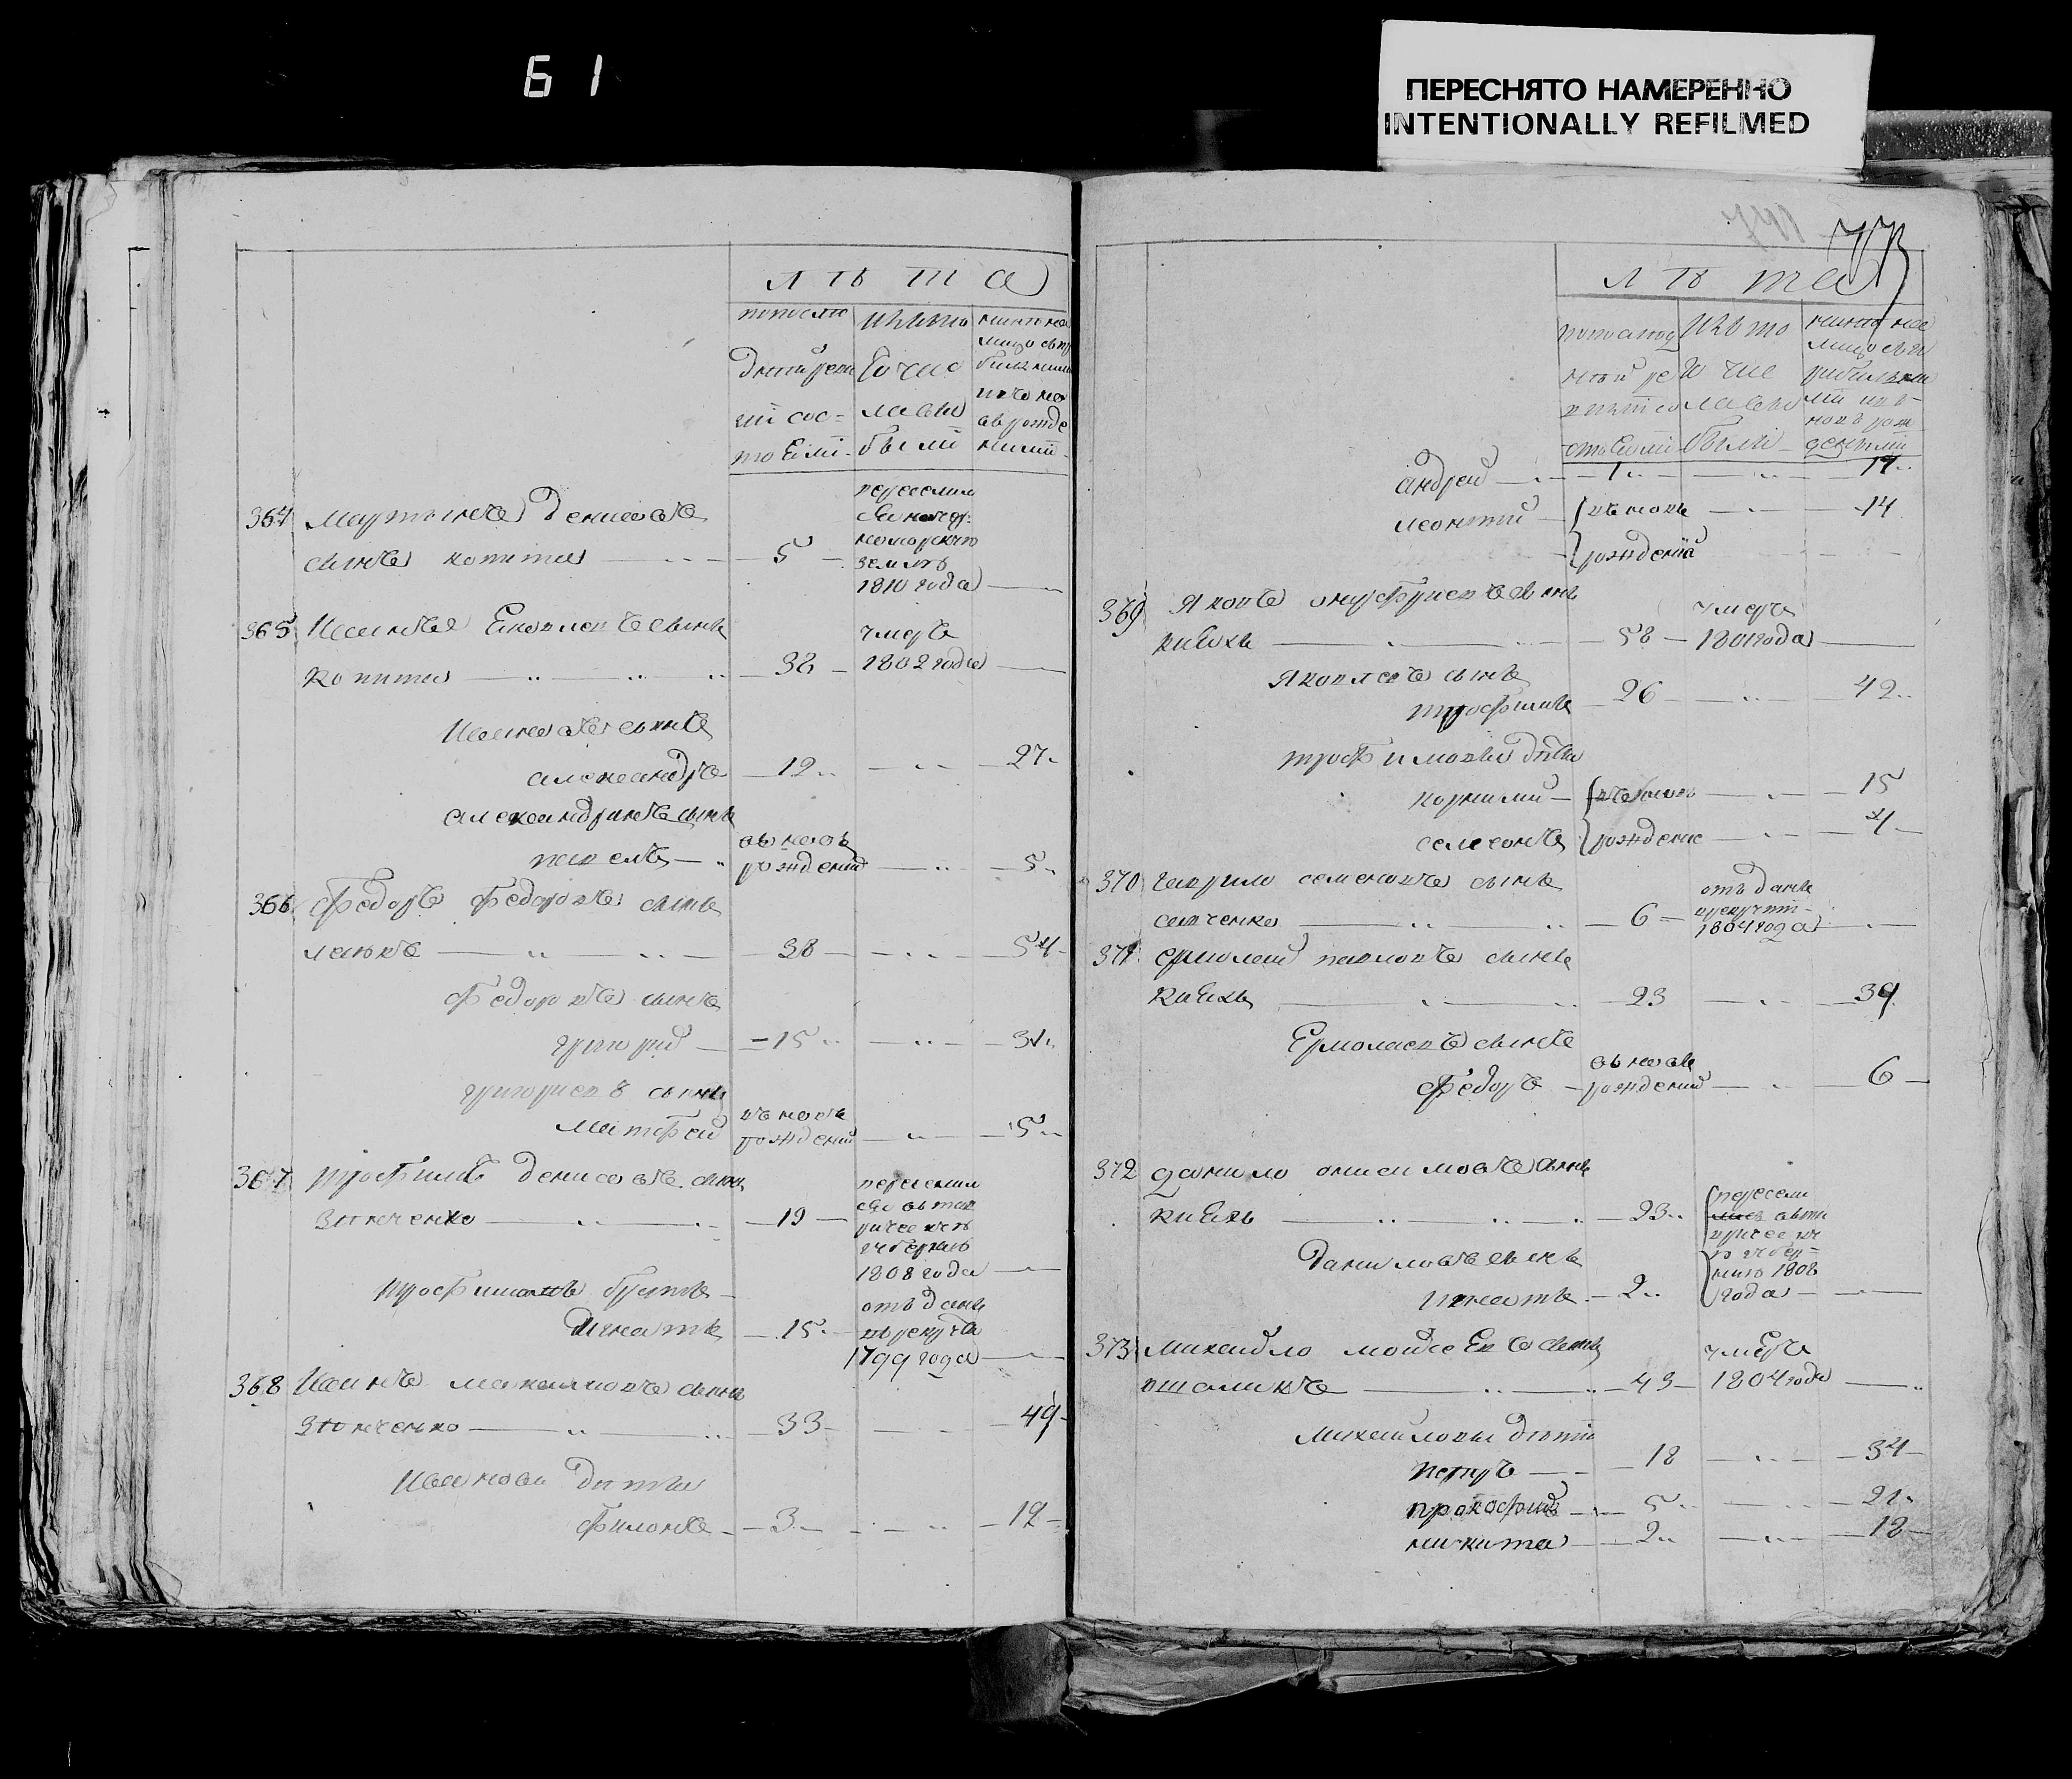 61
ПЕРЕСНЯТО НАМЕРЕННО
INTENTIONALLY REFILMED
лѣта
по последней ревизіи состоёли
изъ того числа выбыли
нынѣ на лицо съ прибылыми и въ новѣ рожденными
364 Мартынъ Денисовъ
сынъ копитца 5
переселил
ся на чор
номорскую
землю
1810 года
365 Иванъ Яковлевъ сынъ
копитца 38
умеръ
1802 года
Ивановъ сынъ
александръ 12 27
александровъ сынъ
павелъ въ новѣ рожденный 5
366 Федоръ Федоровъ сынъ
38 54
Федоровъ сынъ
григорий 15 31
григориевъ сынъ
матфей въ новѣ рожденный 5
367 трофимъ денисовъ сынъ
зинченко 19
переселил
ся въ тав
рическую
губернию
1808 года
трофимовъ братъ
Игнатъ 15
отъ данъ
въ рекрута
1799 года
368 Иванъ сынъ
зинченко 33 49
Ивановы дѣти
филонъ 3 19
773
лѣта
по последней ревизіи состоёли
изъ того числа выбыли
нынѣ на лицо съ прибылыми и въ новъ рожденными
андрей 1 17
леонтий въ новь рожденій 14
369 Яковъ онуфриевъ сынъ
киёхъ 58
умеръ
1801 года
Яковлевъ сынъ
трофимъ 26 42
трофимовы дѣти
корнилий въ новь рожденіе 15
самсонъ 4
370 гаврило семеновъ сынъ
савченко 6
отъ данъ
в рекруты
1804 года
371 ермолай павловъ сынъ
киёхъ 23 39
Ермолаевъ сынъ
федоръ въ новѣ рожденый 6
372 данило онисимовъ сынъ
киёхъ 23
пересели
лись въ та
врическу
ю губер
нию 1808
года
Даниловъ сынъ
игнатъ 2
373 михайло мойсеёвъ сынъ
43
умеръ
1804 года
михайловы дѣти
петръ 18 34
прокофий 5 21
никита 2 18